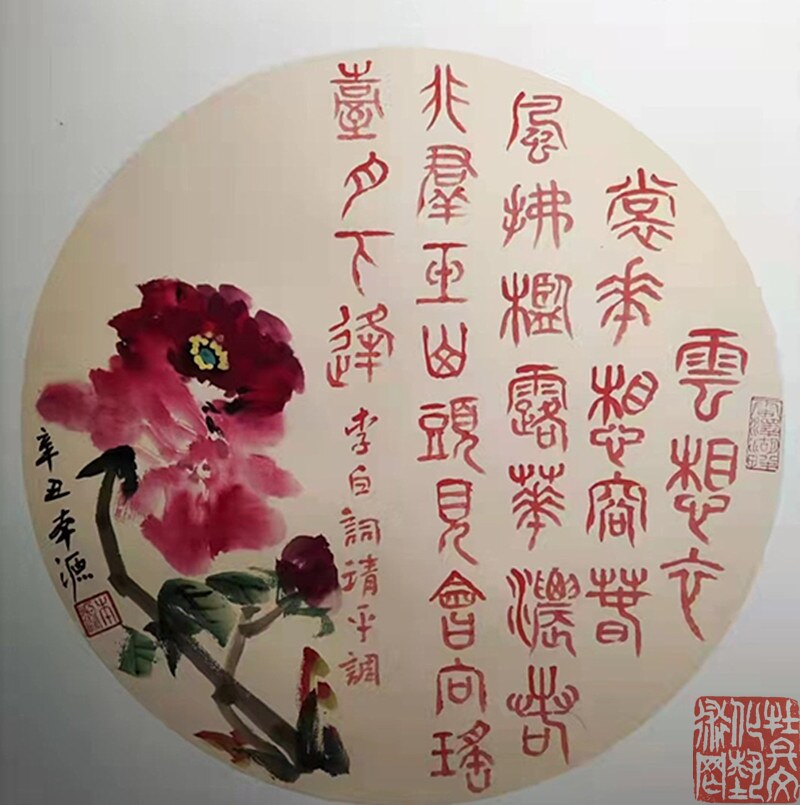 雲想衣
裳花想容春
風拂檻露華濃若
非羣玉山頭見會向瑤
臺月下逢 李白詞清平調
辛丑本源
杜兵文
化藝
術网